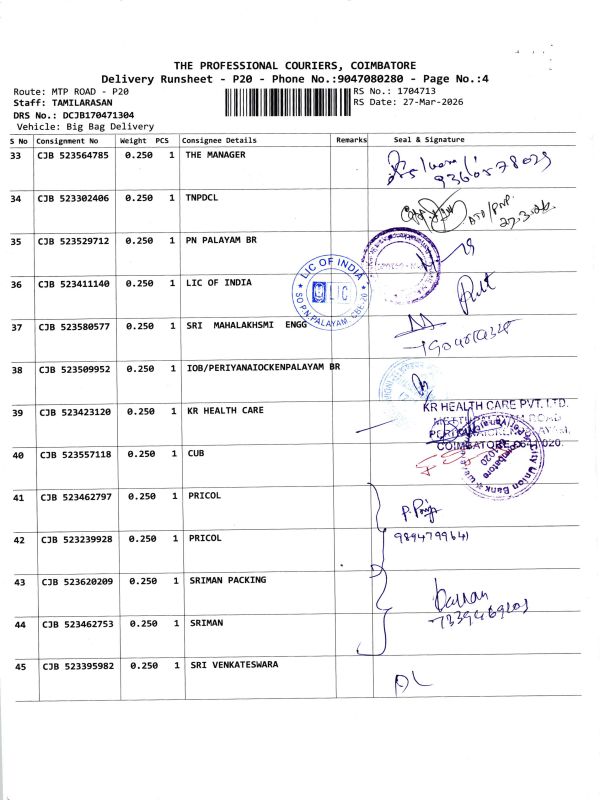 THE PROFESSIONAL COURIERS, COIMBATORE
Delivery Runsheet - P20 - Phone No.:9047080280 - Page No.:4
Route: MTP ROAD - P20
RS No.: 1704713
Staff: TAMILARASAN
RS Date: 27-Mar-2026
DRS No.: DCJB170471304
Vehicle: Big Bag Delivery
S No Consignment No Weight PCS Consignee Details Remarks Seal & Signature
33 CJB 523564785 0.250 1 THE MANAGER
34 CJB 523302406 0.250 1 TNPDCL
27.3.26
35 CJB 523529712 0.250 1 PN PALAYAM BR
36 CJB 523411140 0.250 1 LIC OF INDIA
LIC OF INDIA
LIC
SO PN.PALAYAM CBE-20
37 CJB 523580577 0.250 1 SRI MAHALAKHSMI ENGG
38 CJB 523509952 0.250 1 IOB/PERIYANAIOCKENPALAYAM BR
39 CJB 523423120 0.250 1 KR HEALTH CARE
KR HEALTH CARE PVT. LTD.
COIMBATORE-641 020.
40 CJB 523557118 0.250 1 CUB
City Union Bank
Coimbatore
641020
41 CJB 523462797 0.250 1 PRICOL
P. Priya
42 CJB 523239928 0.250 1 PRICOL
9894799641
43 CJB 523620209 0.250 1 SRIMAN PACKING
44 CJB 523462753 0.250 1 SRIMAN
45 CJB 523395982 0.250 1 SRI VENKATESWARA
DL